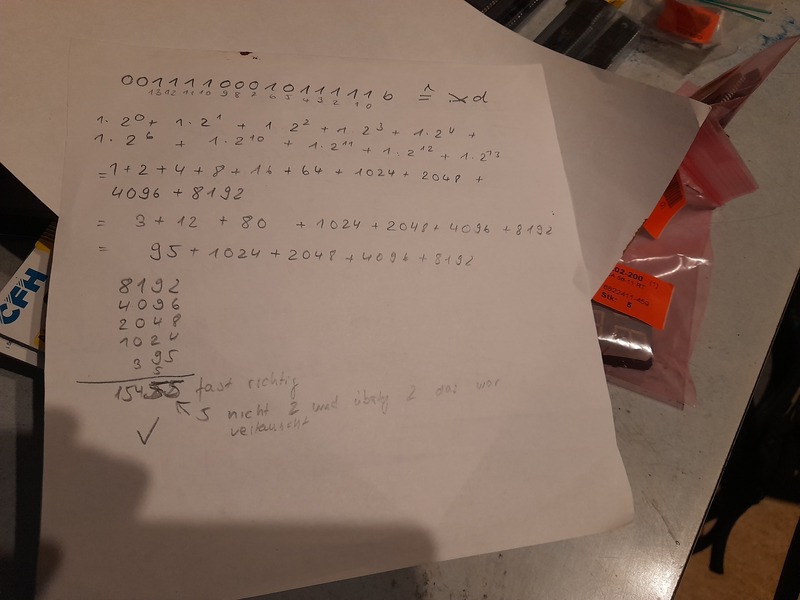 0011110001011111b ≙ xd
13 12 11 10 9 8 7 6 5 4 3 2 1 0
1·2⁰ + 1·2¹ + 1·2² + 1·2³ + 1·2⁴ +
1·2⁶ + 1·2¹⁰ + 1·2¹¹ + 1·2¹² + 1·2¹³
= 1 + 2 + 4 + 8 + 16 + 64 + 1024 + 2048 +
4096 + 8192
= 3 + 12 + 80 + 1024 + 2048 + 4096 + 8192
= 95 + 1024 + 2048 + 4096 + 8192
8192
4096
2048
1024
3 95
5
15455 fast richtig
↖ 5 nicht 2 und übertrag 2 das war
vertauscht
✓
CFH
02-200
Stk. 5